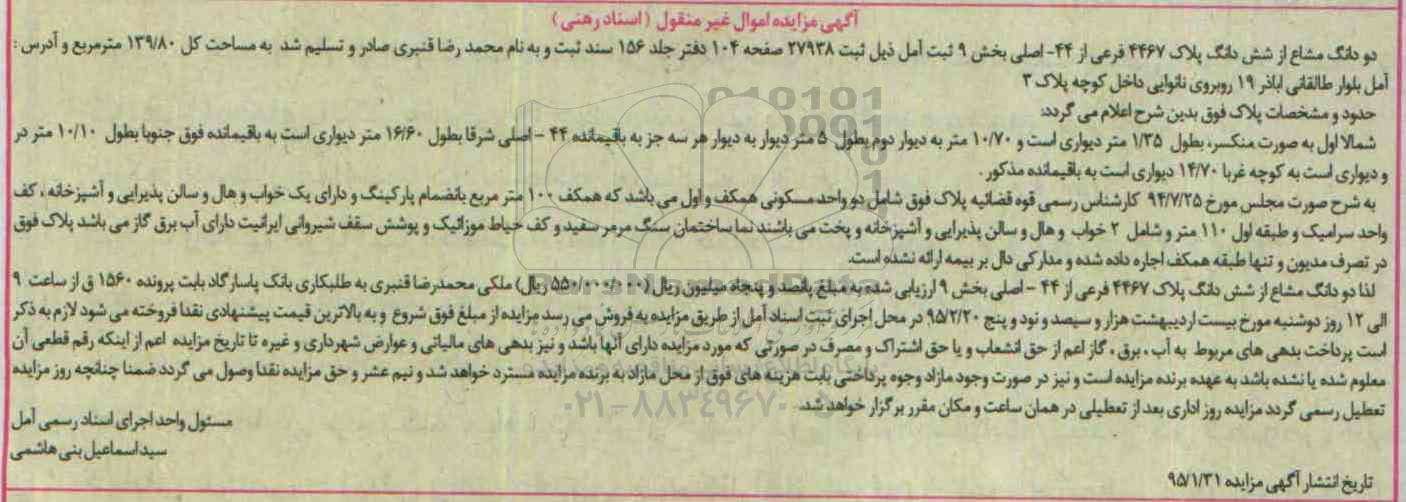 آگهی مزایده اموال غیر منقول (اسناد رهنی)
دو دانگ مشاع از شش دانگ پلاک ۴۴۶۷ فرعی از ۴۴- اصلی بخش ۹ ثبت آمل ذیل ثبت ۲۷۹۳۸ صفحه ۱۰۴ دفتر جلد ۱۵۶ سند ثبت و به نام محمد رضا قنبری صادر و تسلیم شد به مساحت کل ۱۳۹/۸۰ مترمربع و آدرس :
آمل بلوار طالقانی اباذر ۱۹ روبروی نانوایی داخل کوچه پلاک ۳
حدود و مشخصات پلاک فوق بدین شرح اعلام می گردد:
شمالا اول به صورت منکسر، بطول ۱/۳۵ متر دیواری است و ۱۰/۷۰ متر به دیوار دوم بطول ۵ متر دیوار به دیوار هر سه جز به باقیمانده ۴۴ - اصلی شرقا بطول ۱۶/۶۰ متر دیواری است به باقیمانده فوق جنوبا بطول ۱۰/۱۰ متر در
و دیواری است به کوچه غربا ۱۴/۷۰ دیواری است به باقیمانده مذکور .
به شرح صورت مجلس مورخ ۹۴/۷/۲۵ کارشناس رسمی قوه قضائیه پلاک فوق شامل دو واحد مسکونی همکف و اول می باشد که همکف ۱۰۰ متر مربع بانضمام پارکینگ و دارای یک خواب و هال و سالن پذیرایی و آشپزخانه ، کف
واحد سرامیک و طبقه اول ۱۱۰ متر و شامل ۲ خواب و هال و سالن پذیرایی و آشپزخانه و پخت می باشند نما ساختمان سنگ مرمر سفید و کف حیاط موزائیک و پوشش سقف شیروانی ایرانیت دارای آب برق گاز می باشد پلاک فوق
در تصرف مدیون و تنها طبقه همکف اجاره داده شده و مدارکی دال بر بیمه ارائه نشده است.
لذا دو دانگ مشاع از شش دانگ پلاک ۴۴۶۷ فرعی از ۴۴ - اصلی بخش ۹ ارزیابی شده به مبلغ پانصد و پنجاه میلیون ریال (۵۵۰/۰۰۰/۰۰۰ ریال) ملکی محمدرضا قنبری به طلبکاری بانک پاسارگاد بابت پرونده ۱۵۶۰ ق از ساعت ۹
الی ۱۲ روز دوشنبه مورخ بیست اردیبهشت هزار و سیصد و نود و پنج ۹۵/۲/۲۰ در محل اجرای ثبت اسناد آمل از طریق مزایده به فروش می رسد مزایده از مبلغ فوق شروع و به بالاترین قیمت پیشنهادی نقدا فروخته می شود لازم به ذکر
است پرداخت بدهی های مربوط به آب ، برق ، گاز اعم از حق انشعاب و یا حق اشتراک و مصرف در صورتی که مورد مزایده دارای آنها باشد و نیز بدهی های مالیاتی و عوارض شهرداری و غیره تا تاریخ مزایده اعم از اینکه رقم قطعی آن
معلوم شده یا نشده باشد به عهده برنده مزایده است و نیز در صورت وجود مازاد وجوه پرداختی بابت هزینه های فوق از محل مازاد به برنده مزایده مسترد خواهد شد و نیم عشر و حق مزایده نقدا وصول می گردد ضمنا چنانچه روز مزایده
تعطیل رسمی گردد مزایده روز اداری بعد از تعطیلی در همان ساعت و مکان مقرر برگزار خواهد شد.
۰۲۱-۸۸۳۴۹۶۷۰
مسئول واحد اجرای اسناد رسمی آمل
سید اسماعیل بنی هاشمی
تاریخ انتشار آگهی مزایده ۹۵/۱/۳۱